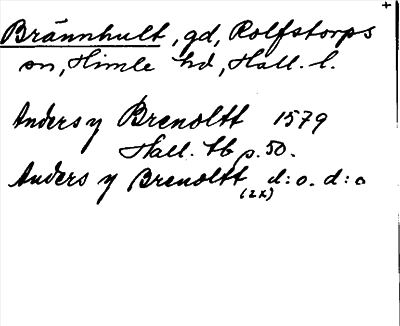 +
Brännhult, gd, Rolfstorps
sn, Himle hd, Hall. l.
Anders y Brenoltt 1579
Hall. tb p. 50.
Anders y Brenoltt (2x) d:o. d:o